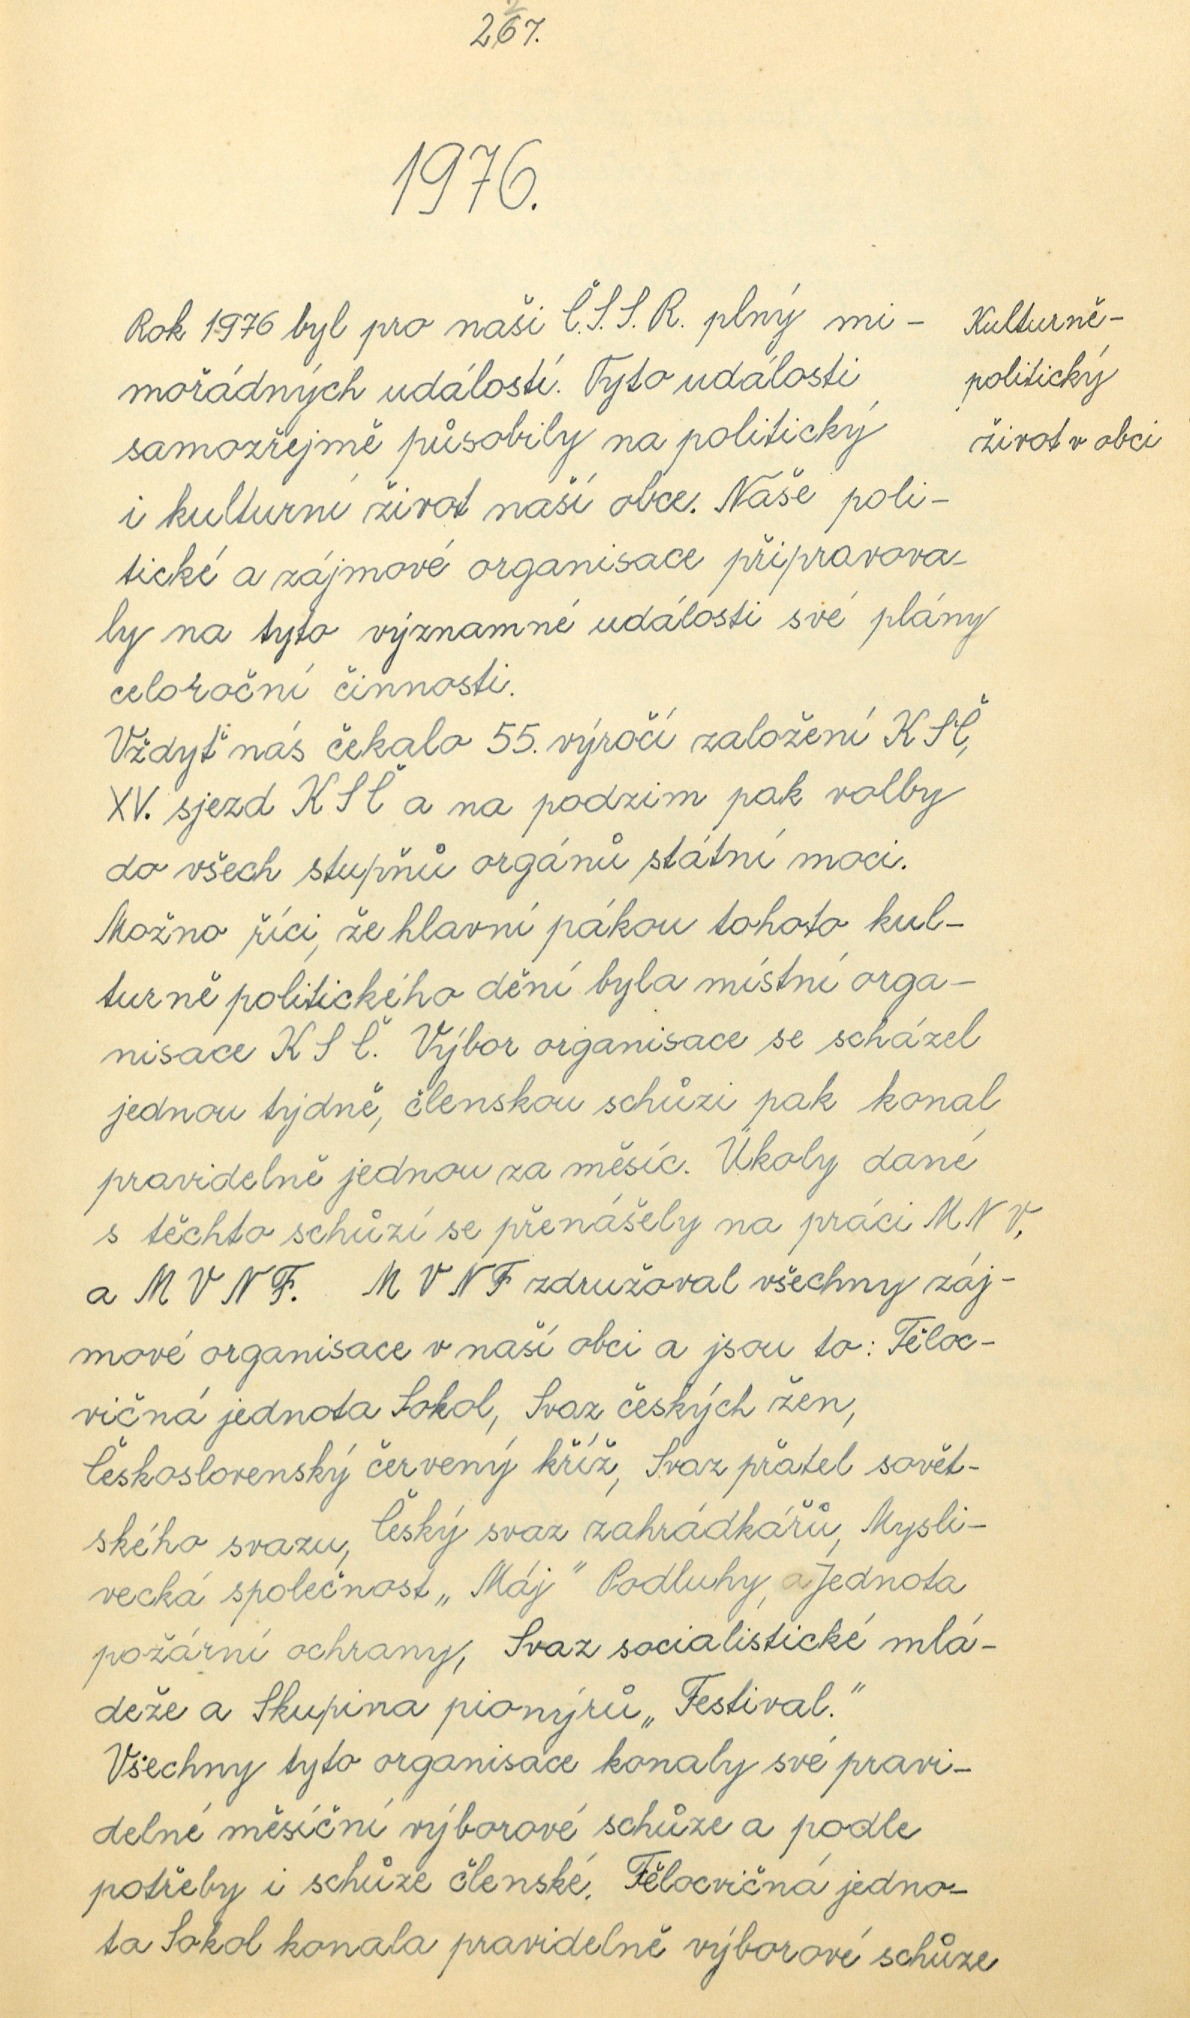 267.
1976.
Rok 1976 byl pro naši Č.S.S.R. plný mi-
mořádných událostí. Tyto události
samozřejmě působily na politický
i kulturní život naší obce. Naše poli-
tické a zájmové organisace připravova-
ly na tyto významné události své plány
celoroční činnosti.
Vždyť nás čekalo 55. výročí založení KSČ,
XV. sjezd KSČ a na podzim pak volby
do všech stupňů orgánů státní moci.
Možno říci, že hlavní pákou tohoto kul-
turně politického dění byla místní orga-
nisace KSČ. Výbor organisace se scházel
jednou týdně, členskou schůzi pak konal
pravidelně jednou za měsíc. Úkoly dané
s těchto schůzí se přenášely na práci MNV,
a MVNF. MVNF združoval všechny záj-
mové organisace v naší obci a jsou to: Těloc-
vičná jednota Sokol, Svaz českých žen,
Československý červený kříž, Svaz přátel sovět-
ského svazu, Český svaz zahrádkářů, Mysli-
vecká společnost „Máj" Podluhy, a Jednota
požární ochrany, Svaz socialistické mlá-
deže a Skupina pionýrů „Festival."
Všechny tyto organisace konaly své pravi-
delné měsíční výborové schůze a podle
potřeby i schůze členské. Tělocvičná jedno-
ta Sokol konala pravidelně výborové schůze
Kulturně-
politický
život v obci